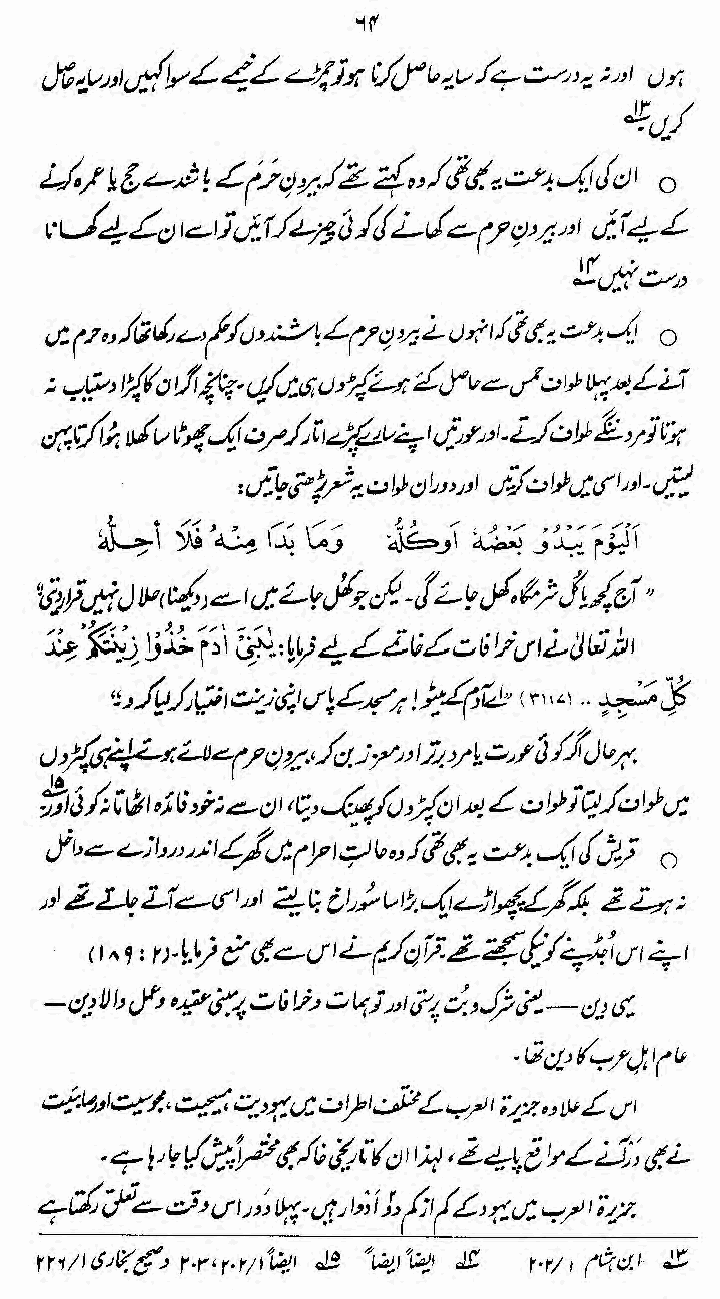 ۶۴
ہوں اور نہ یہ درست ہے کہ سایہ حاصل کرنا ہو تو چمڑے کے خیمے کے سوا کہیں اور سایہ حاصل
کریں۔ ۱۳؎
○ ان کی ایک بدعت یہ بھی تھی کہ وہ کہتے تھے کہ بیرونِ حَرَم کے باشندے حج یا عمرہ کرنے
کے لیے آئیں اور بیرونِ حرم سے کھانے کی کوئی چیز لے کر آئیں تو اسے ان کے لیے کھانا
درست نہیں ۱۴؎
○ ایک بدعت یہ بھی تھی کہ انہوں نے بیرونِ حرم کے باشندوں کو حکم دے رکھا تھا کہ وہ حرم میں
آنے کے بعد پہلا طواف حمس سے حاصل کئے ہوئے کپڑوں ہی میں کریں۔ چنانچہ اگر ان کا کپڑا دستیاب نہ
ہوتا تو مرد ننگے طواف کرتے۔ اور عورتیں اپنے سارے کپڑے اتار کر صرف ایک چھوٹا سا کھلا ہُوا کرتا پہن
لیتیں۔ اور اسی میں طواف کرتیں اور دوران طواف یہ شعر پڑھتی جاتیں:
اَلْیَوْمَ یَبْدُوْ بَعْضُهٗ اَوْ كُلُّهٗ وَمَا بَدَا مِنْهُ فَلَا اُحِلُّهٗ
”آج کچھ یا کُل شرمگاہ کھل جائے گی۔ لیکن جو کھُل جائے میں اسے (دیکھنا) حلال نہیں قرار دیتی“
اللہ تعالیٰ نے اس خرافات کے خاتمے کے لیے فرمایا: يٰبَنِيْٓ اٰدَمَ خُذُوْا زِيْنَتَكُمْ عِنْدَ
كُلِّ مَسْجِدٍ .. (۳۱:۷) ”اے آدم کے بیٹو! ہر مسجد کے پاس اپنی زینت اختیار کر لیا کرو“
بہرحال اگر کوئی عورت یا مرد برتر اور معزز بن کر، بیرونِ حرم سے لائے ہوئے اپنے ہی کپڑوں
میں طواف کر لیتا تو طواف کے بعد ان کپڑوں کو پھینک دیتا، ان سے نہ خود فائدہ اٹھاتا نہ کوئی اور۔ ۱۵؎
○ قریش کی ایک بدعت یہ بھی تھی کہ وہ حالتِ احرام میں گھر کے اندر دروازے سے داخل
نہ ہوتے تھے بلکہ گھر کے پچھواڑے ایک بڑا سا سُوراخ بنا لیتے اور اسی سے آتے جاتے تھے اور
اپنے اس اُجڈپنے کو نیکی سمجھتے تھے۔ قرآن کریم نے اس سے بھی منع فرمایا۔ (۲: ۱۸۹)
یہی دین — یعنی شرک و بُت پرستی اور توہمات و خرافات پر مبنی عقیدہ و عمل والا دین —
عام اہلِ عرب کا دین تھا۔
اس کے علاوہ جزیرۃ العرب کے مختلف اطراف میں یہودیت، مسیحیت، مجوسیت اور صابئیت
نے بھی دَر آنے کے مواقع پا لیے تھے، لہذا ان کا تاریخی خاکہ بھی مختصراً پیش کیا جا رہا ہے۔
جزیرۃ العرب میں یہود کے کم از کم دو اَدوار ہیں۔ پہلا دَور اس وقت سے تعلق رکھتا ہے
۱۳؎ ابن ہشام ۱/۲۰۲ ۱۴؎ ایضاً ایضاً ۱۵؎ ایضاً ۱/۲۰۲، ۲۰۳ و صحیح بخاری ۱/۲۲۶